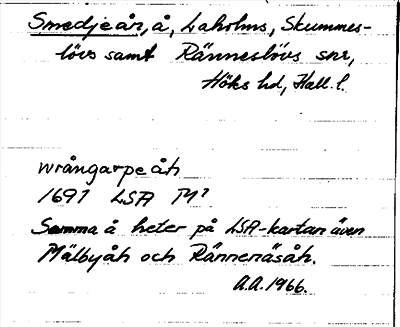 Smedjeån, å, Laholms, Skummes-
lövs samt Ränneslövs snr,
Höks hd, Hall. l.
wrångarpeåh
1697 LSA M7
Samma å heter på LSA-kartan även
Mälbyåh och Rännenäsåh.
A.A. 1966.